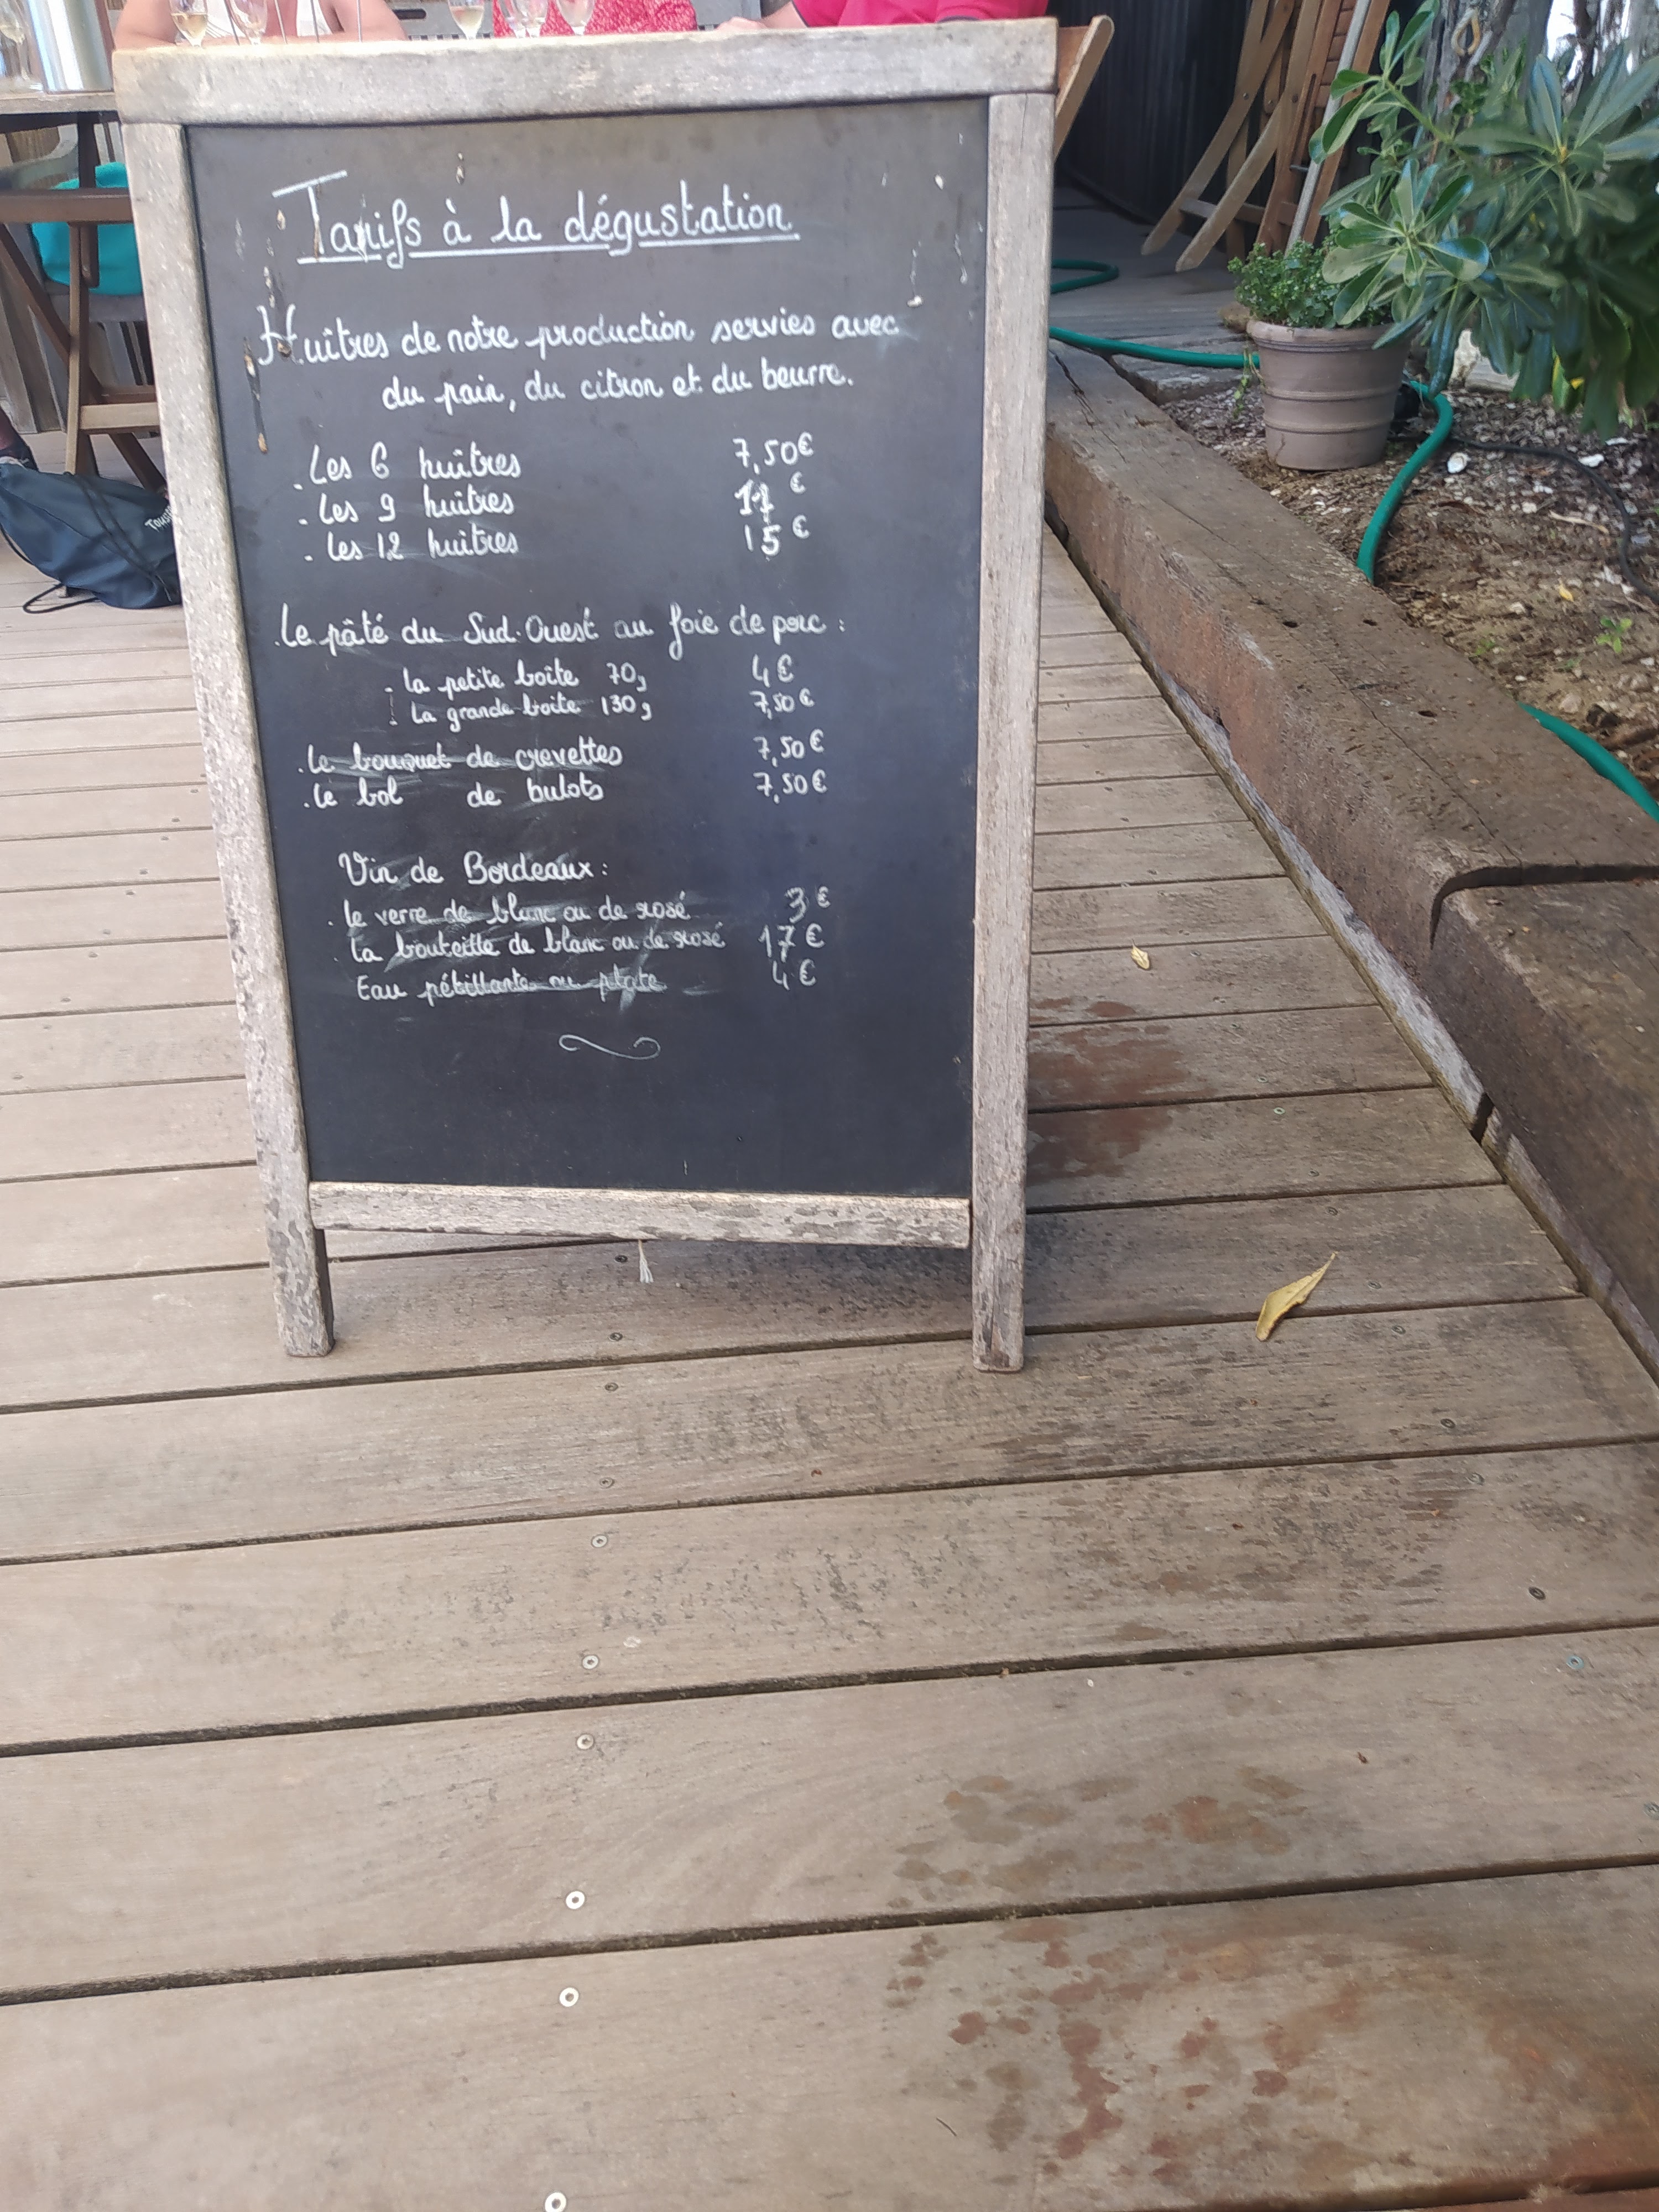 Tarifs à la dégustation
Huîtres de notre production servies avec
du pain, du citron et du beurre.
. Les 6 huîtres 7,50€
. Les 9 huîtres €
. Les 12 huîtres 15€
. Le pâté du Sud-Ouest au foie de porc :
. La petite boîte 70g 4€
. La grande boite 130g 7,50€
. Le bouquet de crevettes 7,50€
. Le bol de bulots 7,50€
Vin de Bordeaux :
. le verre de blanc ou de rosé 3€
. La bouteille de blanc ou de rosé 17€
Eau pétillante ou plate 4€